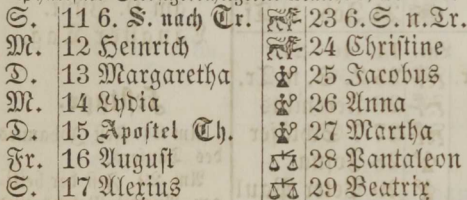 S. 11 6. S. nach Tr. 23 6. S. n. Tr.
M. 12 Heinrich 24 Christine
D. 13 Margaretha 25 Jacobus
M. 14 Lydia 26 Anna
D. 15 Apostel Th. 27 Martha
Fr. 16 August 28 Pantaleon
S. 17 Alexius 29 Beatrix